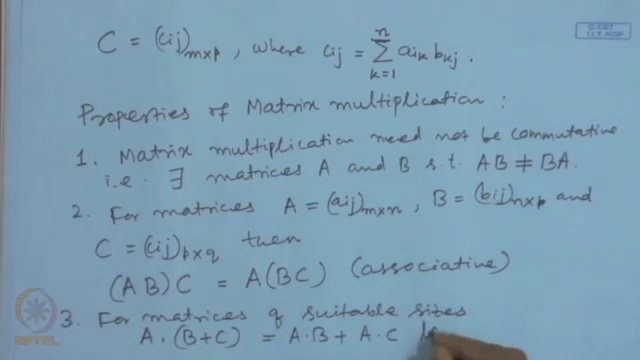 C = (cij)m×p, where cij = Σ_{k=1}^{n} aik bkj.
© CET
I.I.T. KGP
Properties of Matrix multiplication :
1. Matrix multiplication need not be commutative
i.e. ∃ matrices A and B s.t. AB ≠ BA.
2. For matrices A = (aij)m×n, B = (bij)n×p and
C = (cij)p×q then
(AB)C = A(BC) (associative)
3. For matrices of suitable sizes
A·(B+C) = A·B + A·C
NPTEL